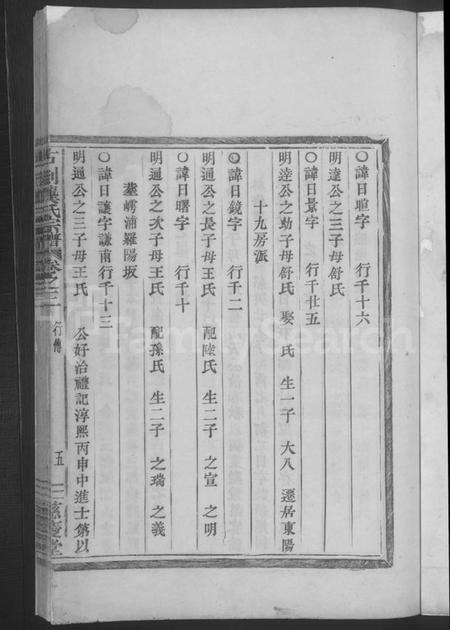 ○諱日暄字 行千十六
明達公之三子母舒氏
○諱日景字 行千廿五
明達公之幼子母舒氏 娶 氏 生一子 大八 遷居東陽
十九房派
○諱日鏡字 行千二
明通公之長子母王氏 配陸氏 生二子 之宣 之明
○諱日曙字 行千十
明通公之次子母王氏 配孫氏 生二子 之瑞 之義
葬崿浦羅陽坂
○諱日讓字謙甫行千十三
明通公之三子母王氏 公好治禮記淳熙丙申中進士第以
古剡 氏宗譜 卷之三 行傳 五 慈 堂
FamilySearch